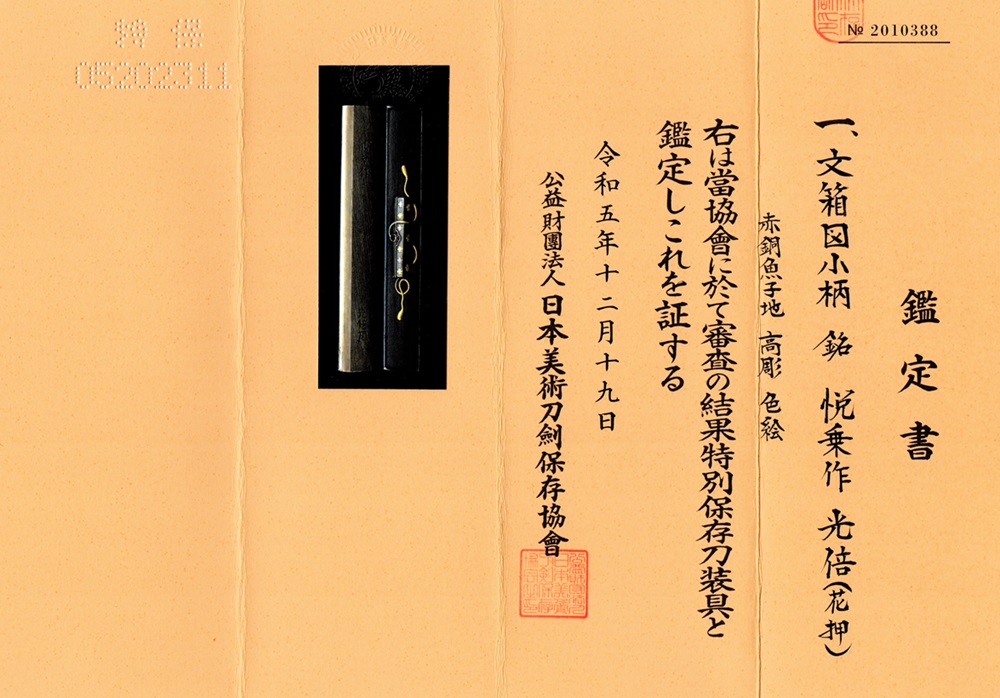 № 2010388
鑑定書
一、文箱図小柄 銘 悦乗作 光倍(花押)
赤銅魚子地 高彫 色絵
右は當協會に於て審査の結果特別保存刀装具と
鑑定しこれを証する
令和五年十二月十九日
公益財團法人 日本美術刀劍保存協會
特保
05202311